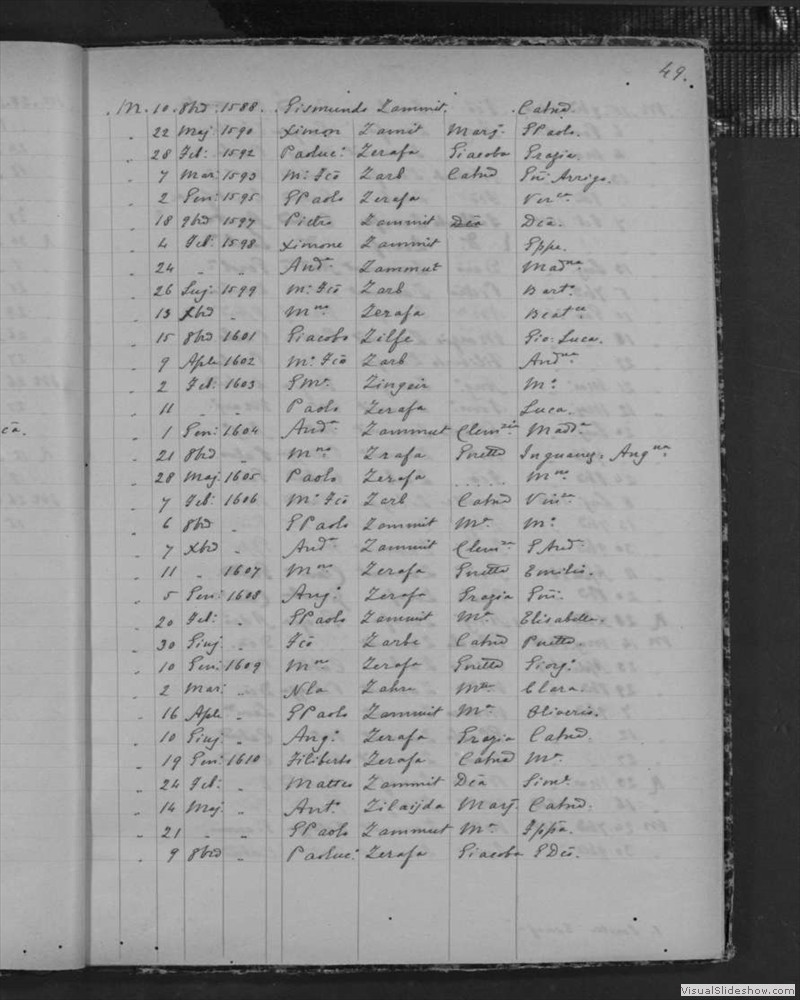 49.
M. 10 8bd 1588. Gismundo Zammit. Catnd
„ 22 Maj 1590 Ximon Zamit Marj GPaolo.
„ 28 Feb: 1592 Paoluc: Zerafa Giacoba Grazia.
„ 7 Mar: 1593 Mo Fco Zarb Catnd Gni Arrigo.
„ 2 Gen: 1595 GPaolo Zerafa Verca.
„ 18 9bd 1597 Pietro Zammit Dea Dea.
„ 4 Feb: 1598 Ximone Zammit Gppe.
„ 24 „ „ Anda Zammut Madna
„ 26 Lug 1599 Mo Fco Zarb Barta
„ 13 Xbd Mno Zerafa Beatce
„ 15 8bd 1601 Giacobo Zilfe Gio: Luca.
„ 9 Aple 1602 Mo Fco Zarb Andna
„ 2 Feb: 1603 GMa Zingeir Ma
„ 11 „ Paolo Zerafa Luca.
ca.
„ 1 Gen: 1604 Anda Zammut Clemzia Madda
„ 21 8bd „ Mno Zrafa Gretta Inguanez: Angna
„ 28 Maj 1605 Paolo Zerafa ..... Mno
„ 7 Feb: 1606 Mo Fco Zarb Catnd Vinta
„ 6 8bd „ GPaolo Zammit Ma Ma
„ 7 Xbd „ Anda Zammit Clemza GAnda
„ 11 „ 1607 Mno Zerafa Gretta Emilia.
„ 5 Gen: 1608 Ango Zerafa Grazia Gni.
„ 20 Feb: „ GPaolo Zammit Ma Elisabetta.
„ 30 Giug „ Fco Zarbe Catnd Pretta
„ 10 Gen: 1609 Mno Zerafa Gretta Giorgo
„ 2 Mar: „ Nla Zahra Mta Clara.
„ 16 Aple „ GPaolo Zammit Ma Oliveria.
„ 10 Giug „ Ango Zerafa Grazia Catnd
„ 19 Gen: 1610 Filiberto Zerafa Catnd Ma
„ 24 Feb: „ Matteo Zammit Dea Simne
„ 14 Maj „ Anto Zilaijda Marj Catnd.
„ 21 „ „ GPaolo Zammut Ma Gppa.
„ 9 8bd „ Paoluc: Zerafa Giacoba GDco.
VisualSlideshow.com